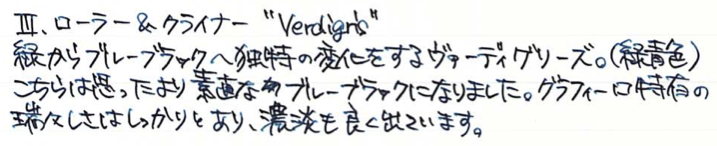 Ⅲ. ローラー & クライナー "Verdigris"
緑からブルーブラックへ独特の変化をするヴァーディグリーズ。(緑青色)
こちらは思ったより素直なブルーブラックになりました。グラフィーロ特有の
瑞々しさはしっかりとあり、濃淡も良く出ています。